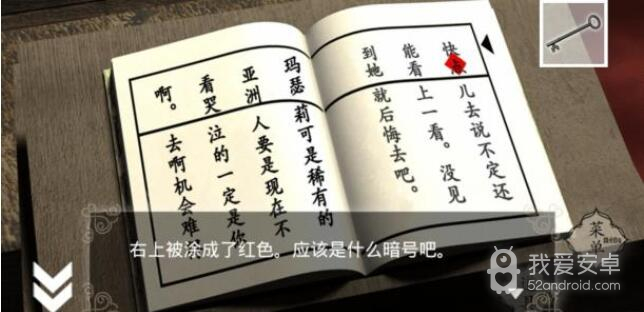 快儿去说不定还
能看上一看。没见
到她就后悔去吧。
玛瑟莉可是稀有的
亚洲人要是现在不
看哭泣的一定是你
啊。去啊机会难
右上被涂成了红色。应该是什么暗号吧。
菜单
我爱安卓
52android.com